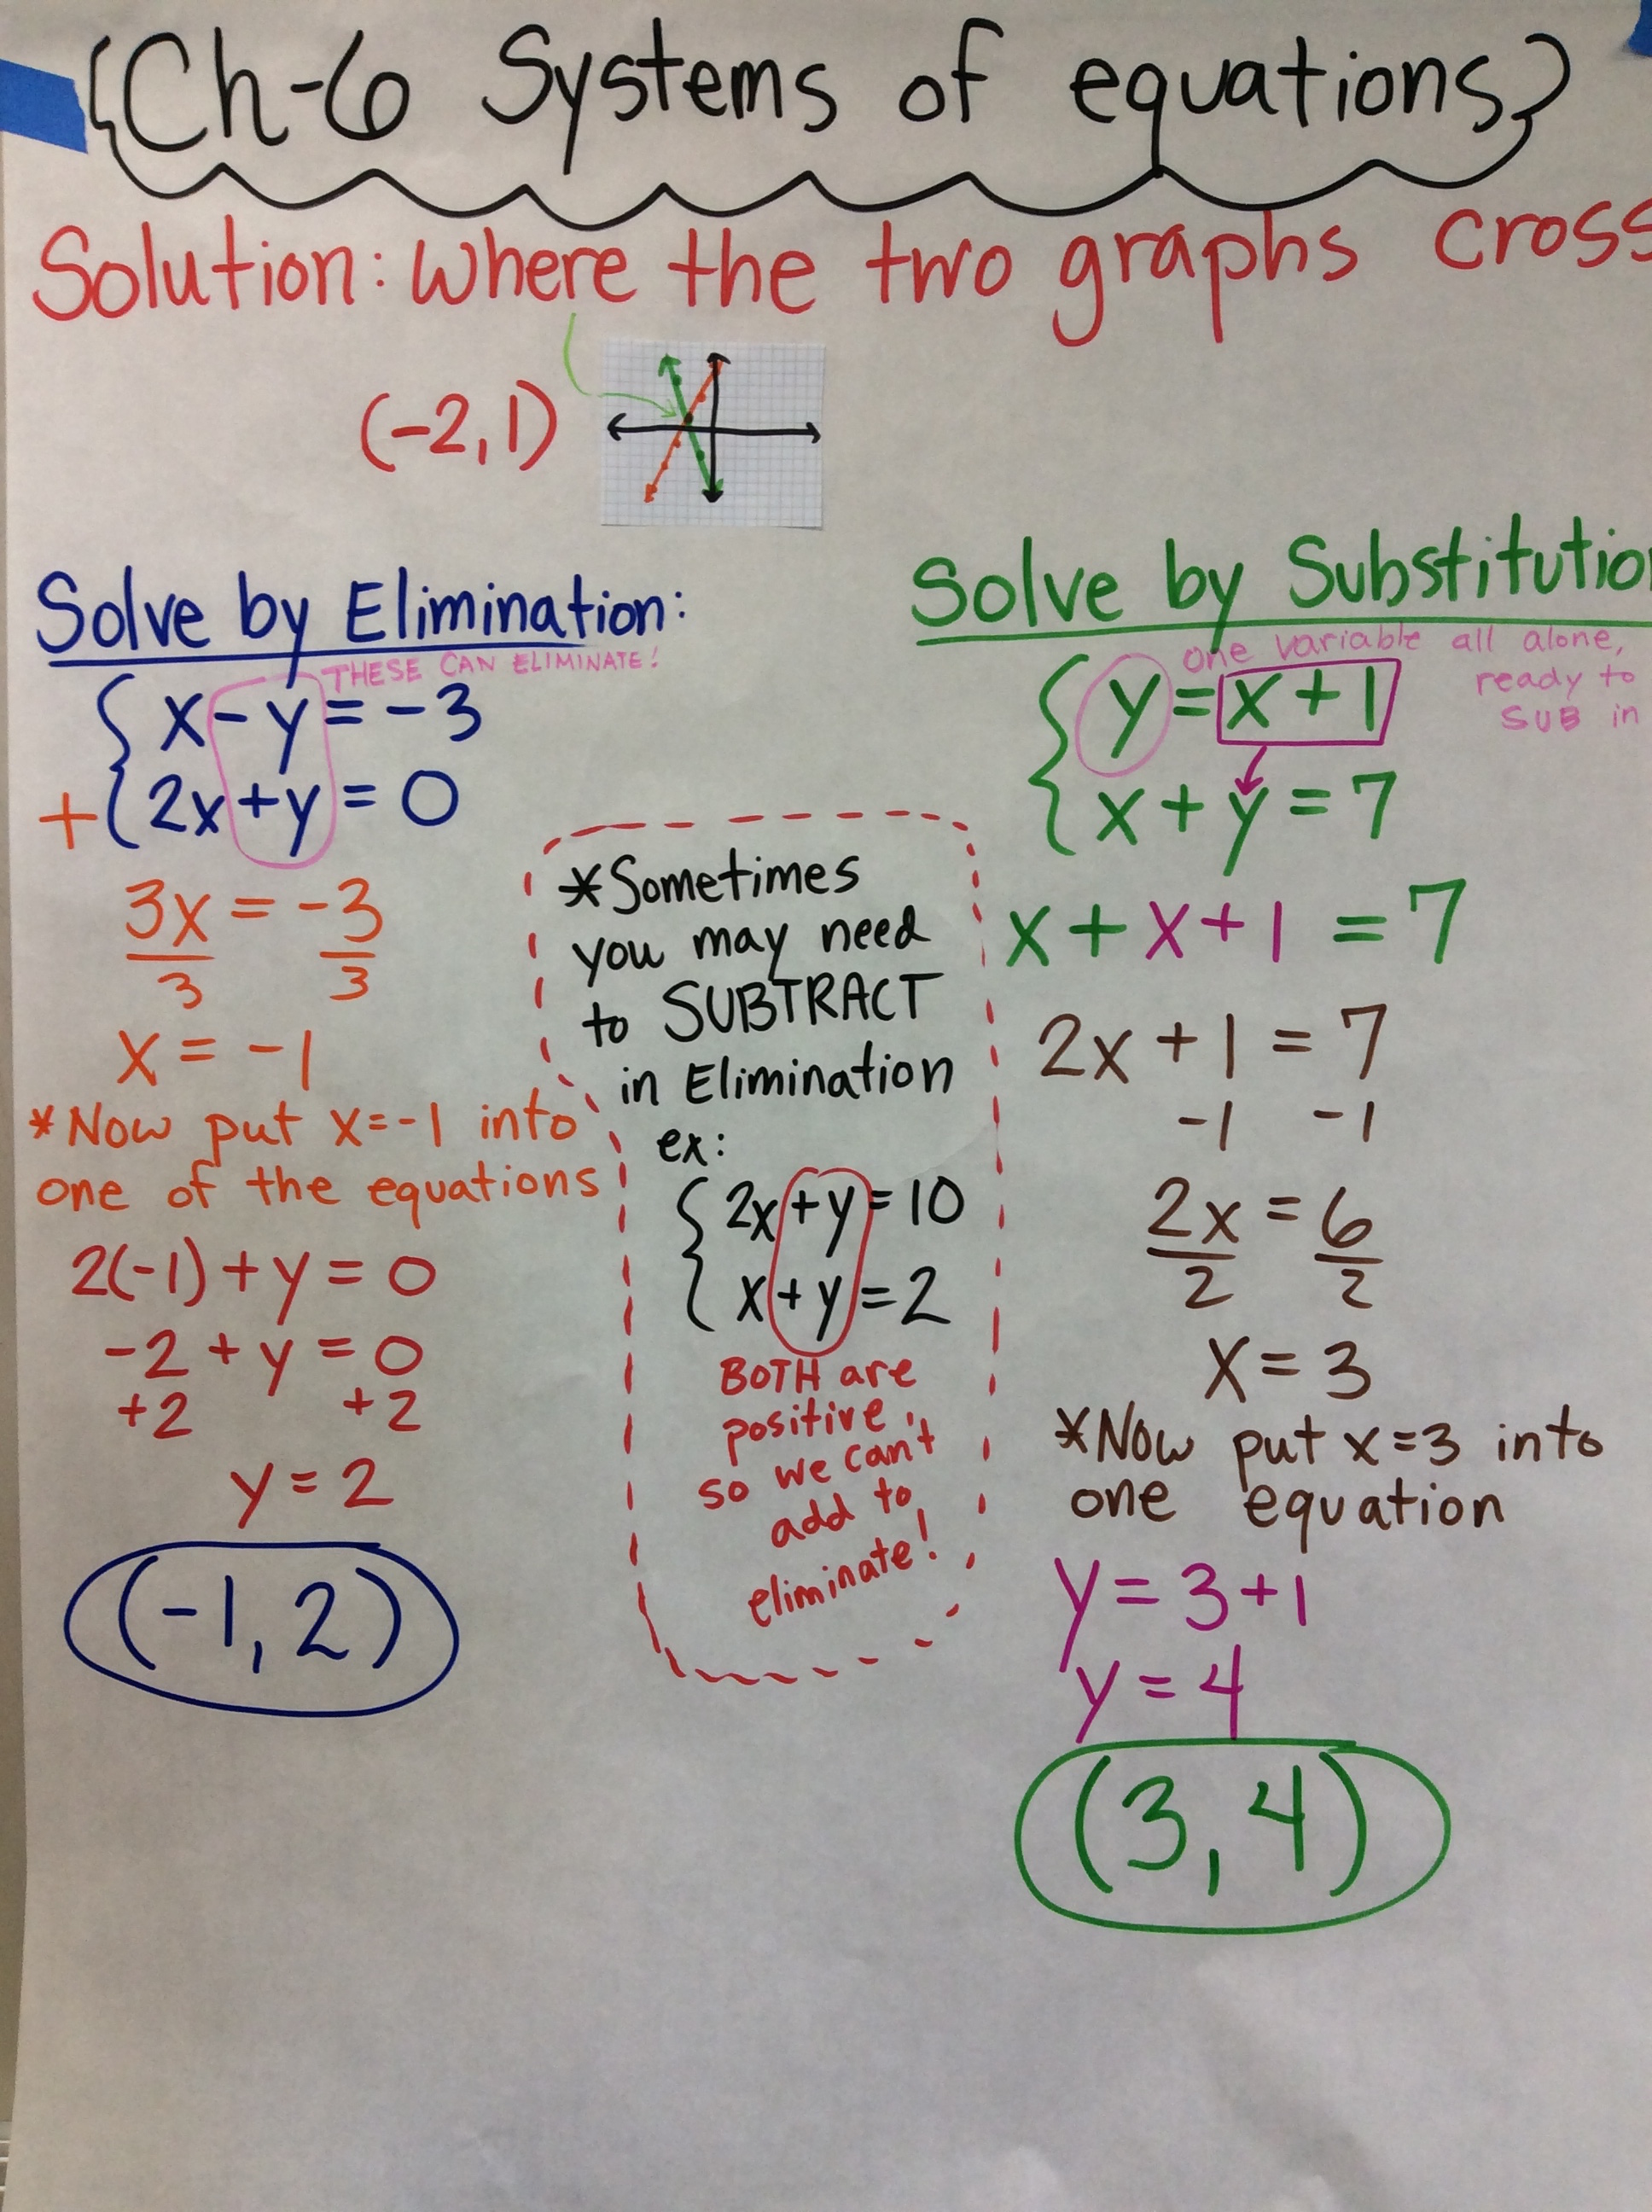 {Ch-6 Systems of equations}
Solution: where the two graphs cross
(-2,1)
Solve by Elimination:
THESE CAN ELIMINATE!
x-y=-3
+ 2x+y=0
3x = -3
3 3
x = -1
*Now put x=-1 into
one of the equations
2(-1)+y=0
-2+y=0
+2 +2
y=2
(-1,2)
*Sometimes
you may need
to SUBTRACT
in Elimination
ex:
2x+y=10
x+y=2
BOTH are
positive,
so we can't
add to
eliminate!
Solve by Substitutio
one variable all alone,
ready to
SUB in
y=x+1
x+y=7
x+x+1=7
2x+1=7
-1 -1
2x=6
2 2
x=3
*Now put x=3 into
one equation
y=3+1
y=4
(3,4)